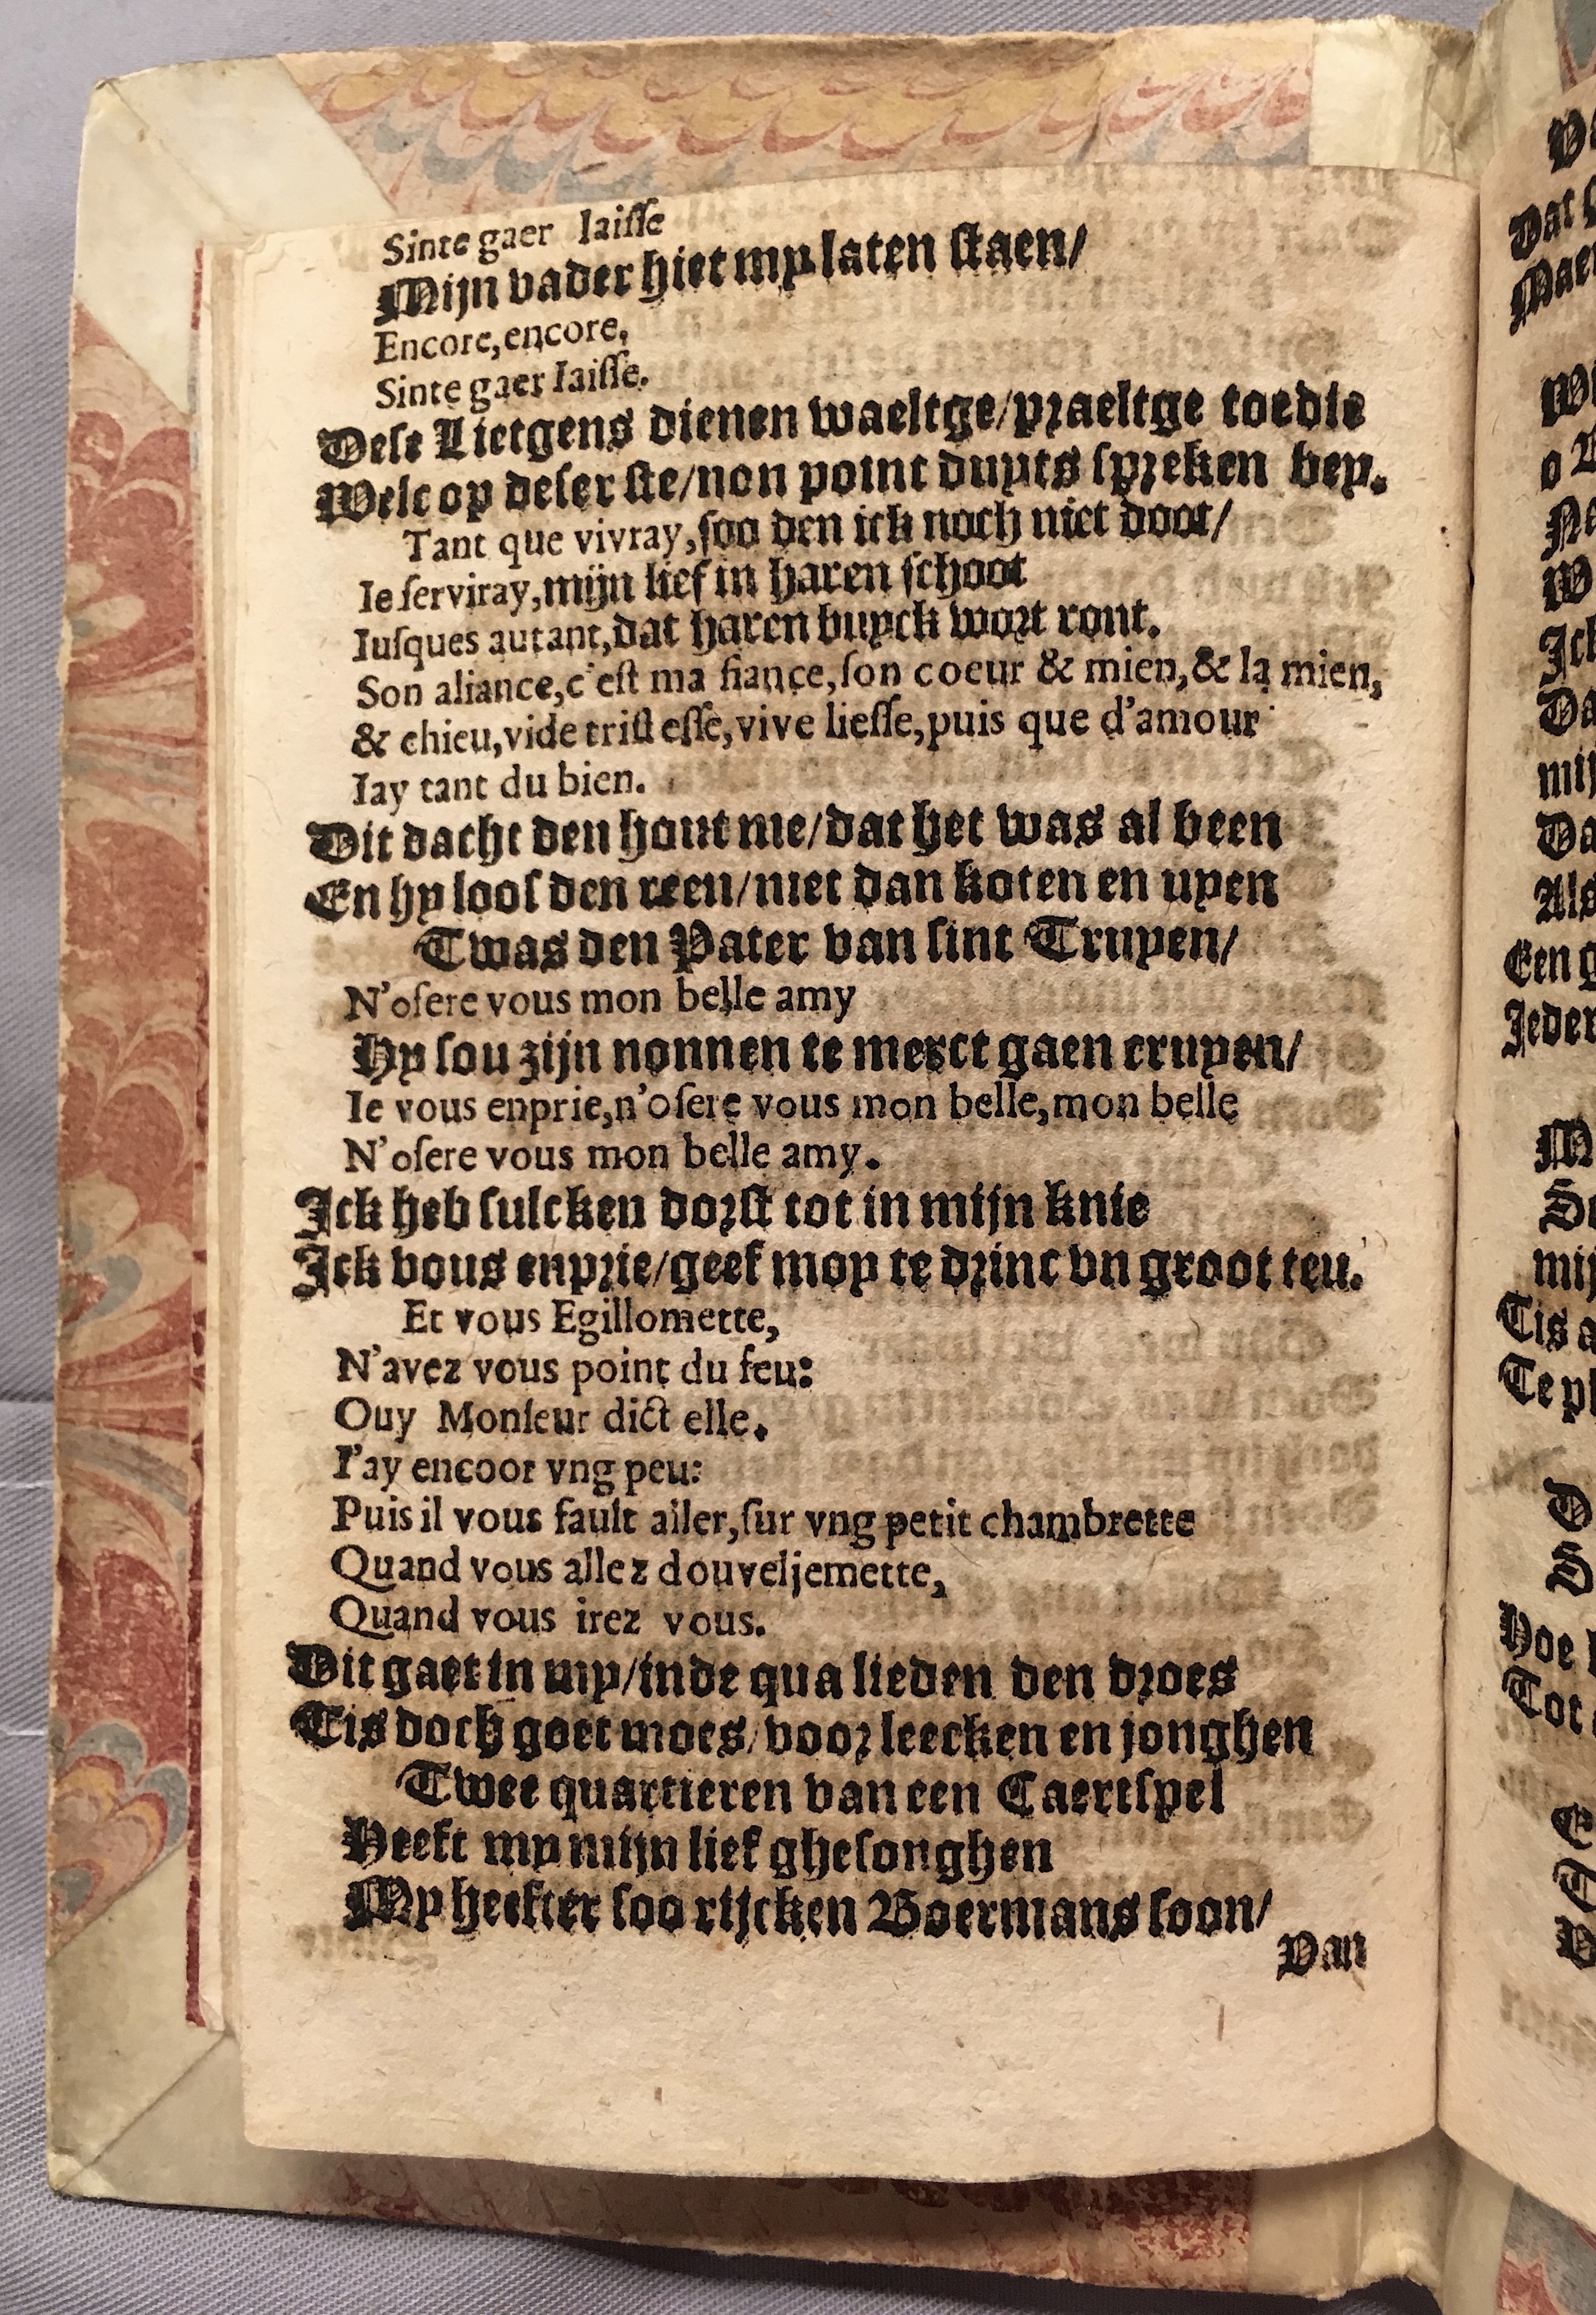 Sinte gaer Iaiſſe
Mijn vader hiet my laten ſtaen/
Encore, encore,
Sinte gaer Iaiſſe.
Deſe Lietgens dienen waeltge/praeltge toedie
Welc op deſer ſte/non point duyts ſpreken bey.
Tant que vivray,ſoo ben ick noch niet doot/
Ie ſerviray,mijn lief in haren ſchoot
Iuſques autant,dat haren buyck wort ront.
Son aliance,c'eſt ma fiance,ſon coeur & mien,& la mien,
& chieu,vide triſteſſe,vive lieſſe,puis que d'amour
Iay tant du bien.
Dit dacht den hout me/dat het was al been
En hy loos den reen/niet dan koten en uyen
Twas den Pater van ſint Truyen/
N'oſere vous mon belle amy
Hy ſou zijn nonnen te merct gaen cruyen/
Ie vous enprie,n'oſere vous mon belle,mon belle
N'oſere vous mon belle amy.
Ick heb ſulcken dorſt tot in mijn knie
Ick vous enprie/geef moy te drinc vn groot teu.
Et vous Egillomette,
N'avez vous point du feu:
Ouy Monſeur dict elle.
I'ay encoor vng peu:
Puis il vous fault aller,ſur vng petit chambrette
Quand vous allez douveljemette,
Quand vous irez vous.
Dit gaet in my/inde qua lieden den droes
Tis doch goet moes/voor leecken en jonghen
Twee quartieren van een Caertſpel
Heeft my mijn lief gheſonghen
My heefter ſoo rijcken Boermans ſoon/
Van